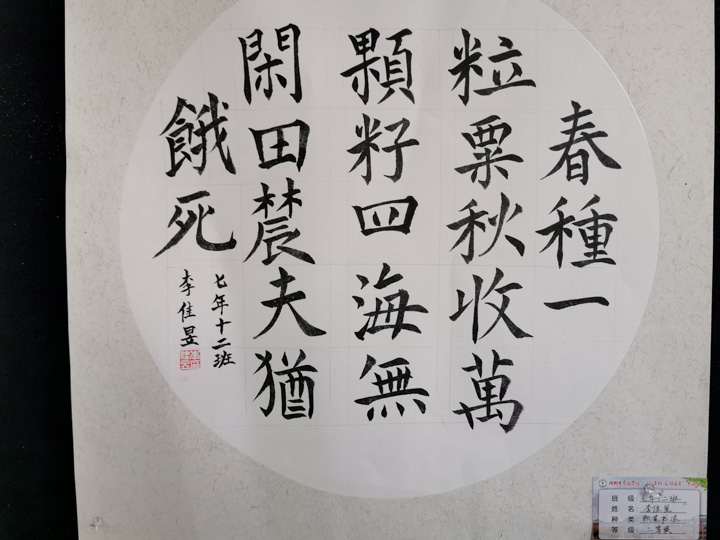 春種一
粒粟秋收萬
顆籽四海無
閑田辳夫猶
餓死
七年十二班
李佳昱
班 级 七年十二班
姓 名 李佳昱
种 类 软笔书法
等 级 二等奖